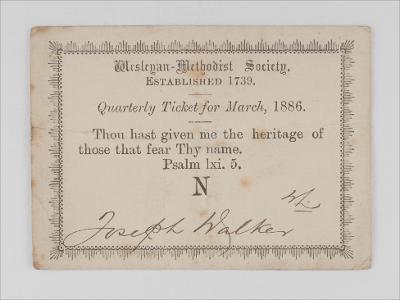 Wesleyan-Methodist Society.
ESTABLISHED 1739.
Quarterly Ticket for March, 1886.
Thou hast given me the heritage of
those that fear Thy name.
Psalm lxi. 5.
N
Joseph Walker